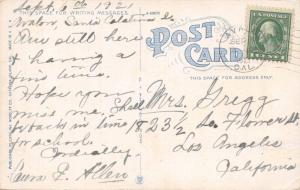 Sept. 6th 1921
THIS SPACE FOR WRITING MESSAGES
Avalon, Santa Catalina Is
Am still here
& having a
fine time.
Hope you
miss me. Shall
be back in time
for school.
Cordially
Laura E. Allen
POST CARD
THIS SPACE FOR ADDRESS ONLY
Mrs. Gregg
1823½ So. Flower St
Los Angeles
California
CAL